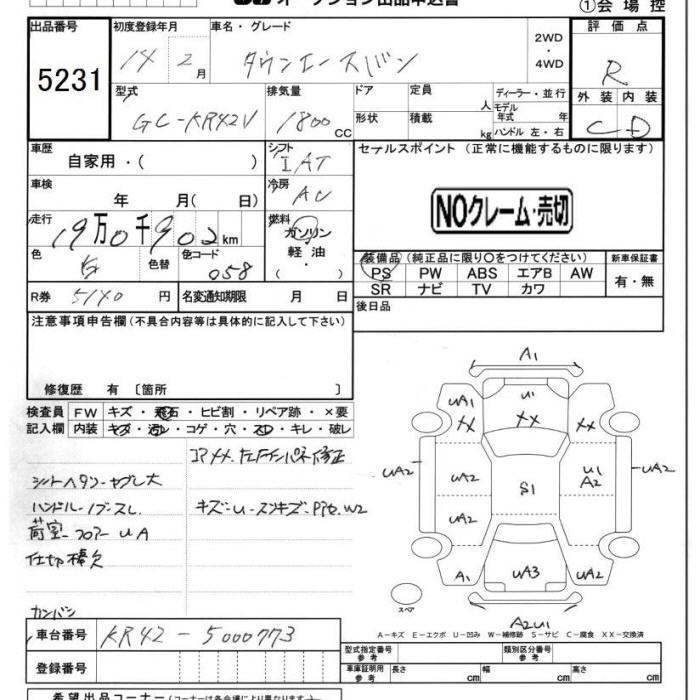 オークション出品申込書
①会場控
出品番号
5231
初度登録年月
14 2月
車名・グレード
タウンエースバン
2WD
・
4WD
評価点
R
外装 内装
C D
型式
GC-KR42V
排気量
1800cc
ドア
形状
定員
人
積載
kg
ディーラー・並行
モデル
年式 年
ハンドル 左・右
車歴
自家用・( )
シフト
IAT
セールスポイント (正常に機能するものに限ります)
NOクレーム・売切
車検
年 月( 日)
冷房
AC
走行
19万0千902km
燃料
ガソリン
軽油・
( )
色
白
色替
色コード
058
装備品(純正品に限り○をつけてください)
新車保証書
PS PW ABS エアB AW
有・無
SR ナビ TV カワ
R券 5140 円
名変通知期限 月 日
後日品
注意事項申告欄(不具合内容等は具体的に記入して下さい)
修復歴 有 〔箇所 〕
検査員
記入欄
FW キズ・飛石・ヒビ割・リペア跡・×要
内装 キズ・汚レ・コゲ・穴・スレ・キレ・破レ
シートヘタリ・ヤブレ大
ハンドル
荷室フロアー UA
仕切棒欠
カンバン
A1
UA1
U1
UA2
XX
XX
XX
UA2
UA2
S1
U1
A2
UA2
UA2
A1
UA3
UA2
スペア
A2U1
A-キズ E-エクボ U-凹み W-補修跡 S-サビ C-腐食 XX-交換済
車台番号
KR42-5000773
登録番号
型式指定番号
類別区分番号
車庫証明用
参考
長さ cm
幅 cm
高さ cm
希望出品コーナー(コーナーは各会場により異なります)